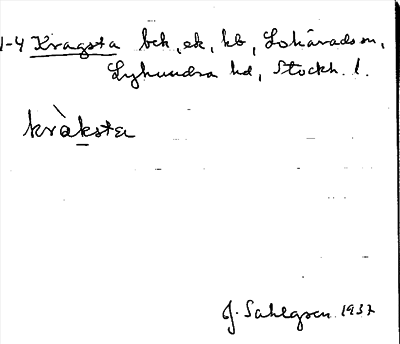 1-4 Kragsta bek, ek, kb, Lohärads sn,
Lyhundra hd, Stockh. l.
kràksta
J. Sahlgren 1937